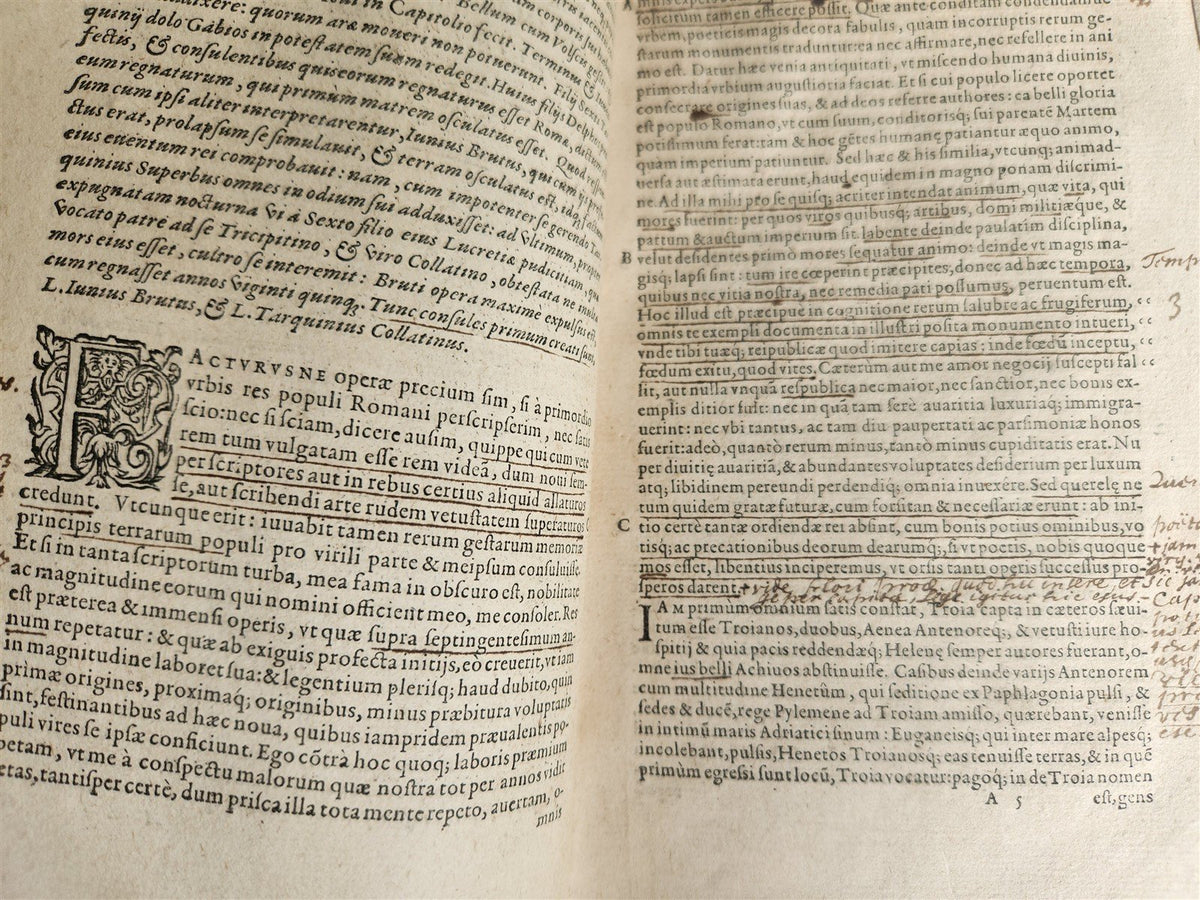 in Capitolio fecit. Terminus &
xere: quorum aræ moueri non potuerunt. Filÿ Sex.
quinÿ dolo Gabios in potestatem suam redegit. Huius filÿs Delphos
fectis, & consulentibus quis eorum regnaturus esset Romæ, dictum
eum regnaturum, qui primum matrem osculatus esset. Quod
sum cum ipsi aliter interpretarentur, Iunius Brutus, qui cum ijs
ctus erat, prolapsum se simulauit, & terram osculatus est, idq;
eius euentum rei comprobauit: nam, cum impotenter se gerendo Tar
quinius Superbus omnes in odium sui adduxisset: ad vltimum, propter
expugnatam nocturna vi à Sexto filio eius Lucretiæ pudicitiam, quæ
vocato patre ad se Tricipitino, & viro Collatino, obtestata ne inulta
mors eius esset, cultro se interemit: Bruti opera maximè expulsus est,
cum regnasset annos viginti quinq;. Tunc consules primum creati sunt,
L. Iunius Brutus, & L. Tarquinius Collatinus.
FACTVRVSNE operæ precium sim, si à primordio
vrbis res populi Romani perscripserim, nec satis
scio: nec si sciam, dicere ausim, quippe qui cum vete
rem tum vulgatam esse rem videã, dum noui sem-
per scriptores aut in rebus certius aliquid allaturos
se, aut scribendi arte rudem vetustatem superaturos
credunt. Vtcunque erit: iuuabit tamen rerum gestarum memoriæ
principis terrarum populi pro virili parte & meipsum consuluisse.
Et si in tanta scriptorum turba, mea fama in obscuro est, nobilitate
ac magnitudine eorum qui nomini officient meo, me consoler. Res
est præterea & immensi operis, vt quæ supra septingentesimum an-
num repetatur: & quæ ab exiguis profecta initijs, eò creuerit, vt iam
in magnitudine laboret sua: & legentium plerisq; haud dubito, quin
primæ origines, proximaq; originibus, minus præbitura voluptatis
sint, festinantibus ad hæc noua, quibus iampridem præualentis po-
puli vires se ipsæ conficiunt. Ego cõtrà hoc quoq; laboris præmium
petam, vt me à conspectu malorum quæ nostra tot per annos vidit
etas, tantisper certè, dum prisca illa tota mente repeto, auertam, o-
mnis
A
solicitum tamen efficere possit. Quæ ante conditam condendamue
vrbem, poëticis magis decora fabulis, quam incorruptis rerum ge-
starum monumentis traduntur: ea nec affirmare, nec refellere in ani
mo est. Datur hæc venia antiquitati, vt miscendo humana diuinis,
primordia vrbium augustiora faciat. Et si cui populo licere oportet
consecrare origines suas, & ad deos referre authores: ea belli gloria
est populo Romano, vt cum suum, conditorisq; sui parentē Martem
potissimum ferat: tam & hoc gētes humanę patiantur æquo animo,
quam imperium patiuntur. Sed hæc & his similia, vtcunq; animad-
uersa aut æstimata erunt, haud equidem in magno ponam discrimi-
ne. Ad illa mihi pro se quisq; acriter intendat animum, quæ vita, qui
mores fuerint: per quos viros quibusq; artibus, domi militiæque, &
partum & auctum imperium sit. labente deinde paulatim disciplina,
B velut desidentes primò mores sequatur animo: deinde vt magis ma-
gisq; lapsi sint: tum ire cœperint præcipites, donec ad hæc tempora,
quibus nec vitia nostra, nec remedia pati possumus, peruentum est.
Hoc illud est præcipuè in cognitione rerum salubre ac frugiferum, “
3
omnis te exempli documenta in illustri posita monumento intueri, “
vnde tibi tuæq; reipublicæ quod imitere capias: inde fœdũ inceptu, “
fœdum exitu, quod vites. Cæterùm aut me amor negocij suscepti fal “
lit, aut nulla vnquã respublica nec maior, nec sanctior, nec bonis ex-
emplis ditior fuit: nec in quã tam serè auaritia luxuriaq; immigra-
uerint: nec vbi tantus, ac tam diu paupertati ac parsimoniæ honos
fuerit: adeò, quantò rerum minus, tantò minus cupiditatis erat. Nu
per diuitię auaritiã, & abundantes voluptates desiderium per luxum
atq; libidinem pereundi perdendiq; omnia inuexêre. Sed querelę ne
tum quidem gratæ futuræ, cum forsitan & necessariæ erunt: ab ini-
C tio certè tantæ ordiendæ rei absint, cum bonis potius ominibus, vo
tisq; ac precationibus deorum dearumq;, si vt poetis, nobis quoque
mos esset, libentius inciperemus, vt orsis tanti operis successus pro-
speros darent.
IAM primum omnium satis constat, Troia capta in cæteros sæui-
tum esse Troianos, duobus, Aenea Antenoreq;, & vetusti iure ho-
spitij & quia pacis reddendæq; Helenę semper autores fuerant, o-
mne ius belli Achiuos abstinuisse. Casibus deinde varijs Antenorem
cum multitudine Henetûm, qui seditione ex Paphlagonia pulsi, &
sedes & ducē, rege Pylemene ad Troiam amisso, quærebant, venisse
in intimũ maris Adriatici sinum: Euganeisq; qui inter mare alpesq;
incolebant, pulsis, Henetos Troianosq; eas tenuisse terras, & in quē
primùm egressi sunt locũ, Troia vocatur: pagoq; inde Troia nomen
A 5 est, gens